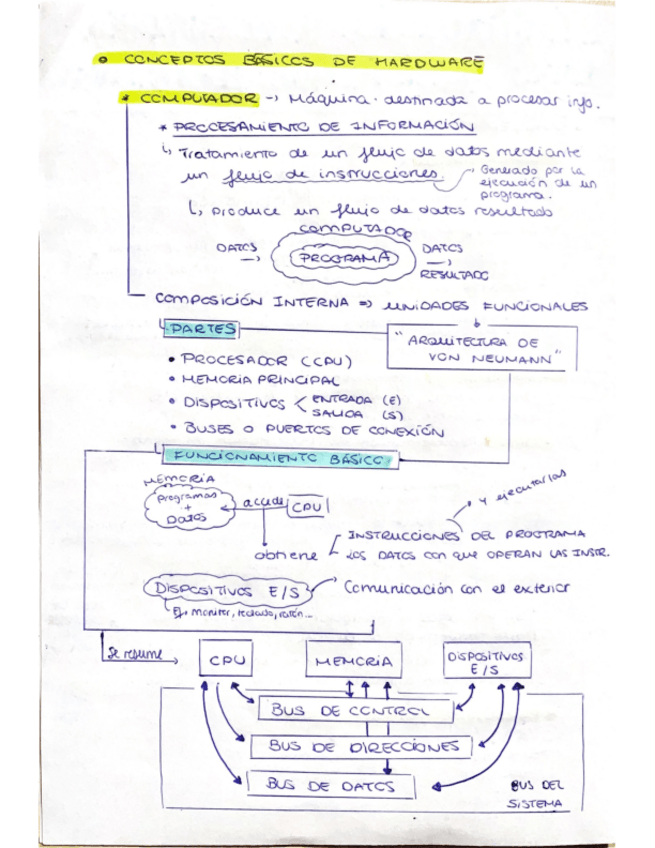 CONCEPTOS BÁSICOS DE HARDWARE
* COMPUTADOR -> Máquina destinada a procesar info.
* PROCESAMIENTO DE INFORMACIÓN
Tratamiento de un flujo de datos mediante
un flujo de instrucciones.
Generado por la
ejecución de un
programa.
produce un flujo de datos resultado
COMPUTADOR
DATOS ->
PROGRAMA
DATOS
->
RESULTADO
COMPOSICIÓN INTERNA => UNIDADES FUNCIONALES
PARTES
"ARQUITECTURA DE
VON NEUMANN"
• PROCESADOR (CPU)
• MEMORIA PRINCIPAL
• DISPOSITIVOS < ENTRADA (E)
SALIDA (S)
• BUSES O PUERTOS DE CONEXIÓN
FUNCIONAMIENTO BÁSICO
MEMORIA
Programas
+
DATOS
accede
CPU
y ejecutarlas
obtiene
INSTRUCCIONES DEL PROGRAMA
LOS DATOS CON QUE OPERAN LAS INSTR.
DISPOSITIVOS E/S
Comunicación con el exterior
Ej: monitor, teclado, ratón...
Se resume
CPU
MEMORIA
DISPOSITIVOS
E/S
BUS DE CONTROL
BUS DE DIRECCIONES
BUS DE DATOS
BUS DEL
SISTEMA